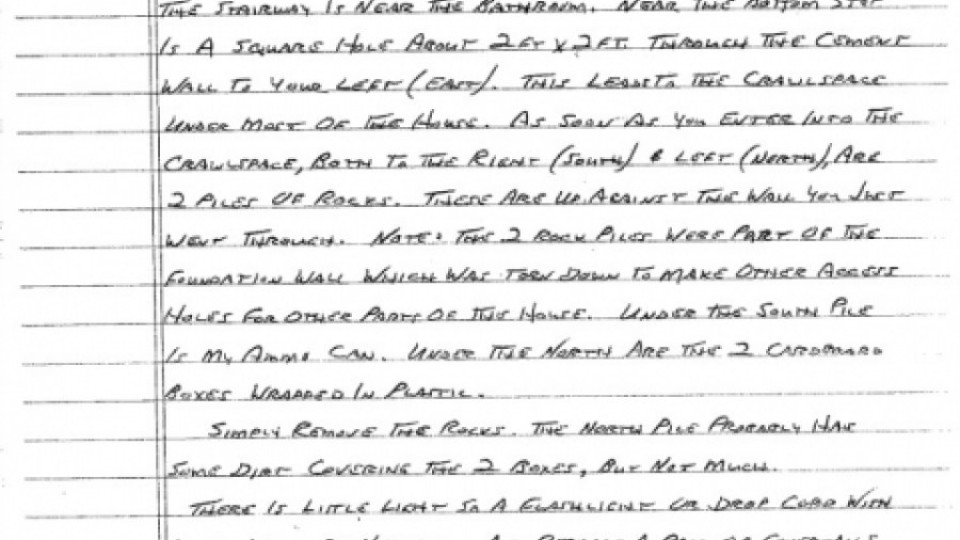 THE STAIRWAY IS NEAR THE BATHROOM. NEAR THE BOTTOM STEP
IS A SQUARE HOLE ABOUT 2FT X 2FT. THROUGH THE CEMENT
WALL TO YOUR LEFT (EAST). THIS LEADS TO THE CRAWLSPACE
UNDER MOST OF THE HOUSE. AS SOON AS YOU ENTER INTO THE
CRAWLSPACE, BOTH TO THE RIGHT (SOUTH) & LEFT (NORTH), ARE
2 PILES OF ROCKS. THESE ARE UP AGAINST THE WALL YOU JUST
WENT THROUGH. NOTE: THE 2 ROCK PILES WERE PART OF THE
FOUNDATION WALL WHICH WAS TORN DOWN TO MAKE OTHER ACCESS
HOLES FOR OTHER PARTS OF THE HOUSE. UNDER THE SOUTH PILE
IS MY AMMO CAN. UNDER THE NORTH ARE THE 2 CARDBOARD
BOXES WRAPPED IN PLASTIC.
SIMPLY REMOVE THE ROCKS. THE NORTH PILE PROBABLY HAS
SOME DIRT COVERING THE 2 BOXES, BUT NOT MUCH.
THERE IS LITTLE LIGHT SO A FLASHLIGHT OR DROP CORD WITH